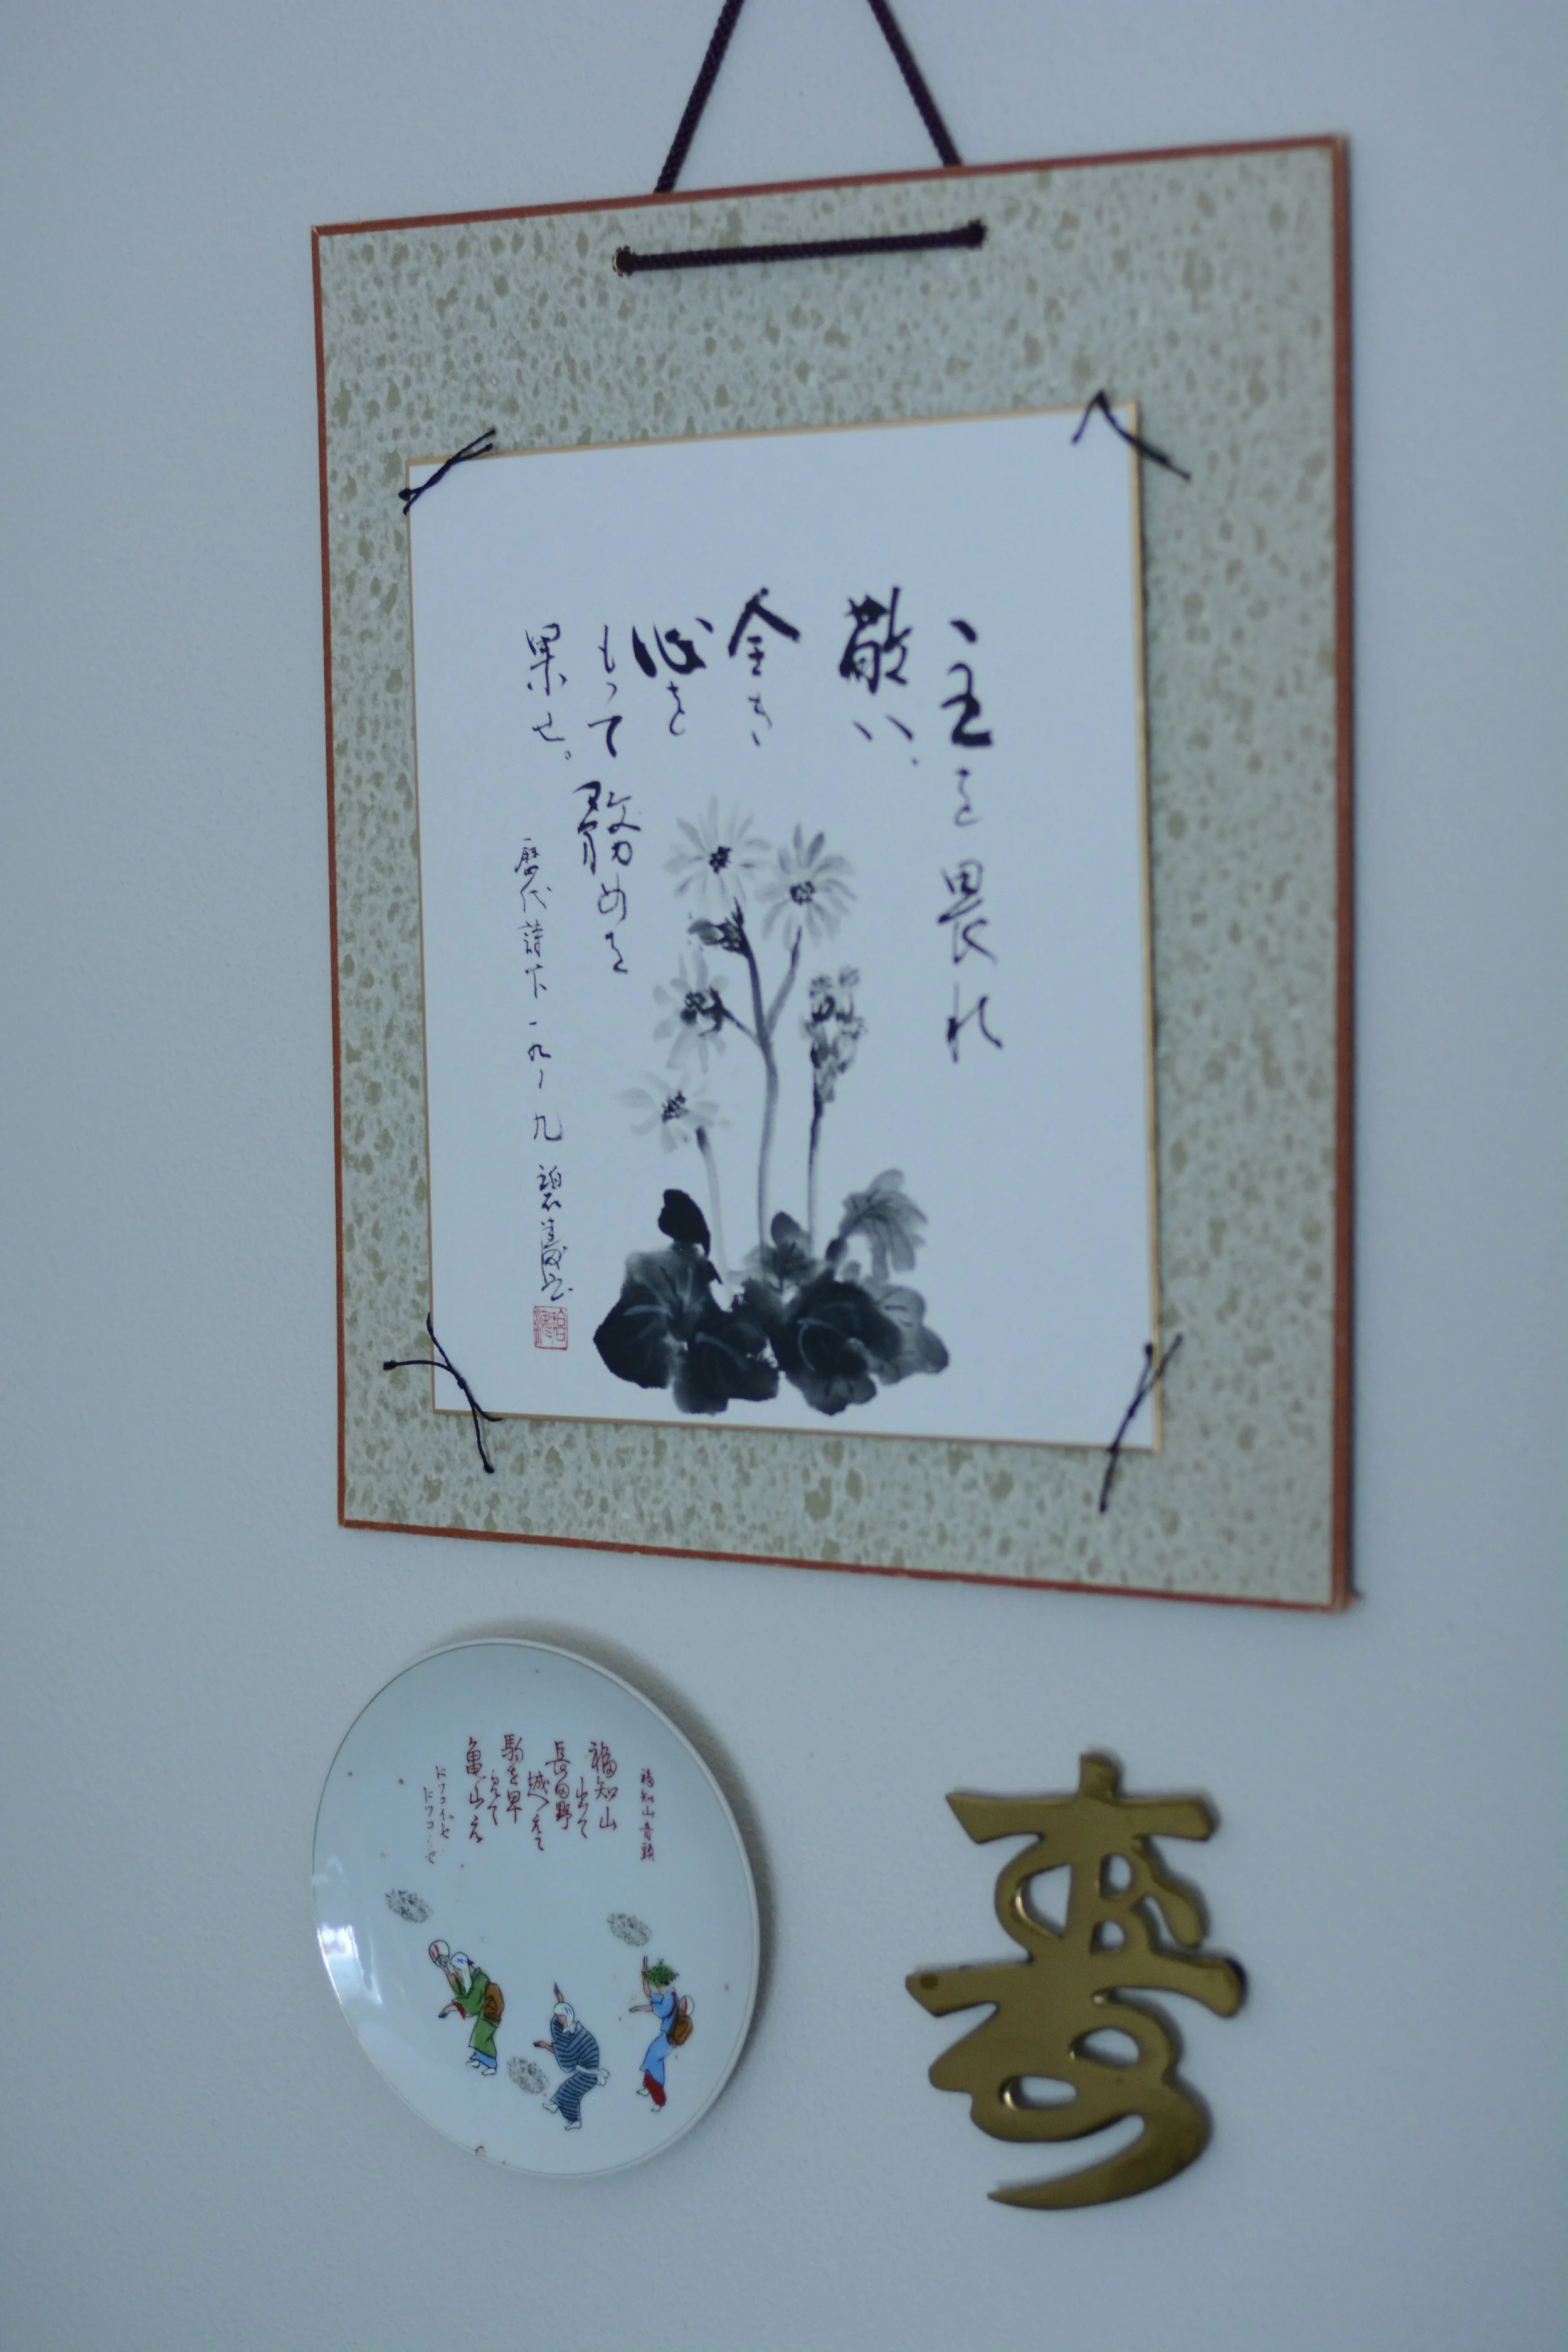 主を畏れ
敬い、
全き
心を
もって務めを
果せ。
歴代誌下一九・九
福知山音頭
福知山
出て
長田野
越えて
駒を早
めて
亀山え
ドッコイセ
ドッコイセ
寿